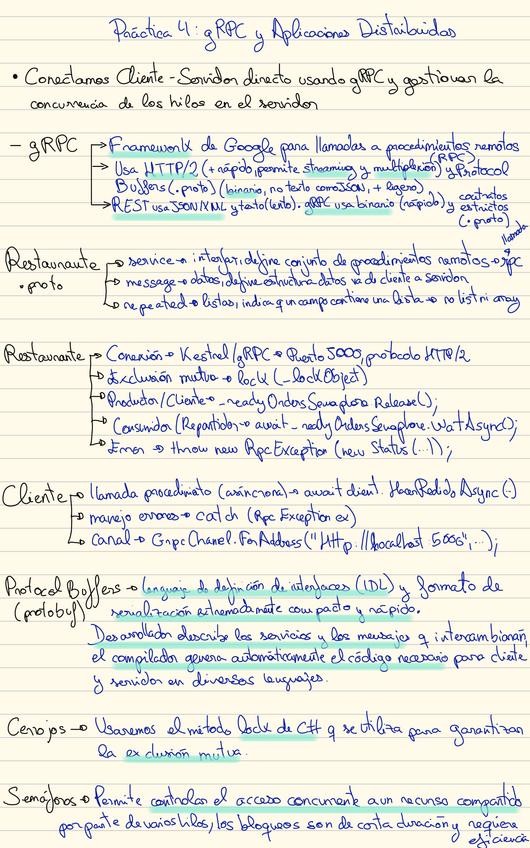 Práctica 4: gRPC y Aplicaciones Distribuidas
• Conectamos Cliente-Servidor directo usando gRPC y gestionar la
concurrencia de los hilos en el servidor
- gRPC → Framework de Google para llamadas a procedimientos remotos
(RPC)
→ Usa HTTP/2 (+ rápido, permite streaming y multiplexión) y Protocol
Buffers (.proto) (binario, no texto como JSON, + ligero)
→ REST usa JSON/XML y texto (lento). gRPC usa binario (rápido) y contratos
estrictos
(.proto)
llamada
Restaurante → service → interfaz, define conjunto de procedimientos remotos → rpc
.proto → message → datos, define estructura datos va de cliente a servidor
→ repeated → listas, indica q un campo contiene una lista → no list ni array
Restaurante → Conexión → Kestrel/gRPC → Puerto 5000, protocolo HTTP/2
→ Exclusión mutua → lock (_lockObject)
→ Productor/Cliente → _readyOrdersSemaphore.Release();
→ Consumidor (Repartidor) → await _readyOrdersSemaphore.WaitAsync();
→ Error → throw new RpcException (new Status (...));
Cliente → llamada procedimiento (asíncrona) → await client.HacerPedidoAsync(.)
→ manejo errores → catch (RpcException ex)
→ canal → GrpcChanel.ForAddress("http://localhost:5000",...);
Protocol Buffers → lenguaje de definición de interfaces (IDL) y formato de
(protobuf) serialización extremadamente compacto y rápido.
Desarrollador describe los servicios y los mensajes q intercambiarán,
el compilador genera automáticamente el código necesario para cliente
y servidor en diversos lenguajes.
Cerrojos → Usaremos el método lock de C# q se utiliza para garantizar
la exclusión mutua.
Semáforos → Permite controlar el acceso concurrente a un recurso compartido
por parte de varios hilos, los bloqueos son de corta duración y requiere
eficiencia